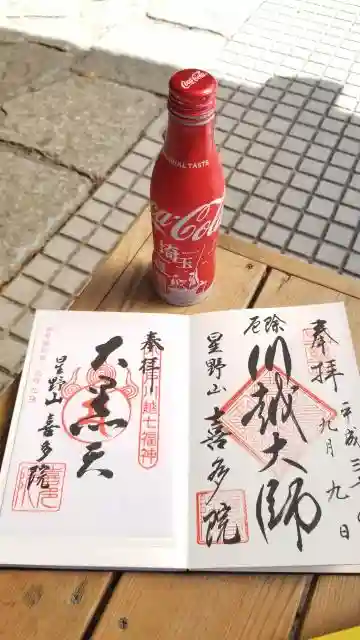 Coca-Cola
ORIGINAL TASTE
Coca-Cola
埼玉
奉拝
川越大師
厄除
星野山
喜多院
九月九日
奉拝
川越七福神
大黒天
星野山
喜多院